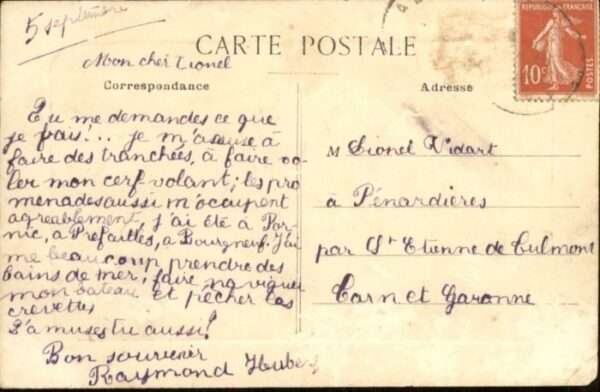 5 septembre
CARTE POSTALE
REPUBLIQUE FRANÇAISE
10c
POSTES
Mon cher Lionel
Correspondance
Adresse
Tu me demandes ce que
je fais!.. je m'amuse à
faire des tranchées, à faire vo-
ler mon cerf-volant; les pro
menades aussi m'occupent
agréablement, j'ai été à Por-
nic, à Préfailles, à Bourgneuf.
me beaucoup prendre des
bains de mer, faire naviguer
mon bateau et pêcher les
crevettes
T'amuses tu aussi?
Bon souvenir
Raymond
M Lionel Vidart
à Pénardières
par St Etienne de Tulmont
Tarn et Garonne